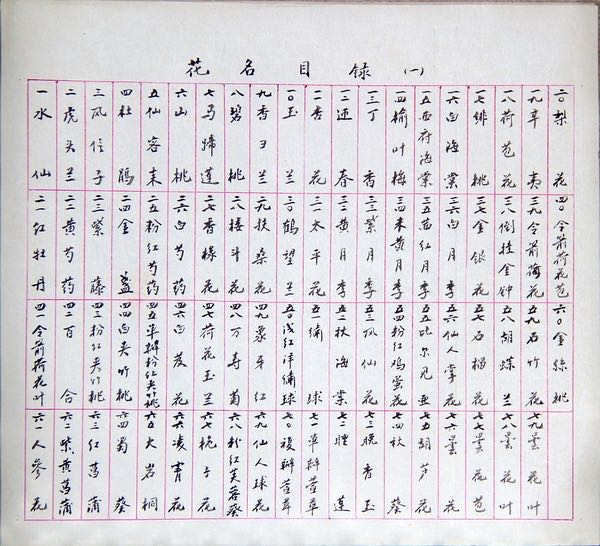 花名目录(一)
一水仙
二虎头兰
三风信子
四杜鹃
五仙客来
六山桃
七马蹄莲
八碧桃
九香ヨ兰
一〇玉兰
一一杏花
一二迎春
一三丁香
一四榆叶梅
一五西府海棠
一六白海棠
一七绯桃
一八荷苞花
一九辛夷
二〇梨花
二一红牡丹
二二黄芍药
二三紫藤
二四金盏
二五粉红芍药
二六白芍药
二七香橼花
二八楼斗花
二九扶桑花
三〇鹤望兰
三一太平花
三二黄月季
三三紫月季
三四朱黄月季
三五茜红月季
三六白月季
三七金银花
三八倒挂金钟
三九令箭荷花
四〇令箭荷花苞
四一令箭荷花叶
四二百合
四三粉红夹竹桃
四四白夹竹桃
四五单瓣粉红夹竹桃
四六白茨花
四七荷花玉兰
四八万寿菊
四九象牙红
五〇浅红洋绣球
五一绣球
五二秋海棠
五三凤仙花
五四粉红鸡蛋花
五五比尔见亚
五六仙人掌花
五七石榴花
五八胡蝶兰
五九石竹花
六〇金丝桃
六一人参花
六二紫黄菖蒲
六三红菖蒲
六四蜀葵
六五大岩桐
六六凌霄花
六七栀子花
六八粉红芙蓉葵
六九仙人球花
七〇複瓣萱草
七一单瓣萱草
七二睡莲
七三晚香玉
七四秋葵
七五胡芦花
七六昙花
七七昙花苞
七八昙花叶
七九昙花叶